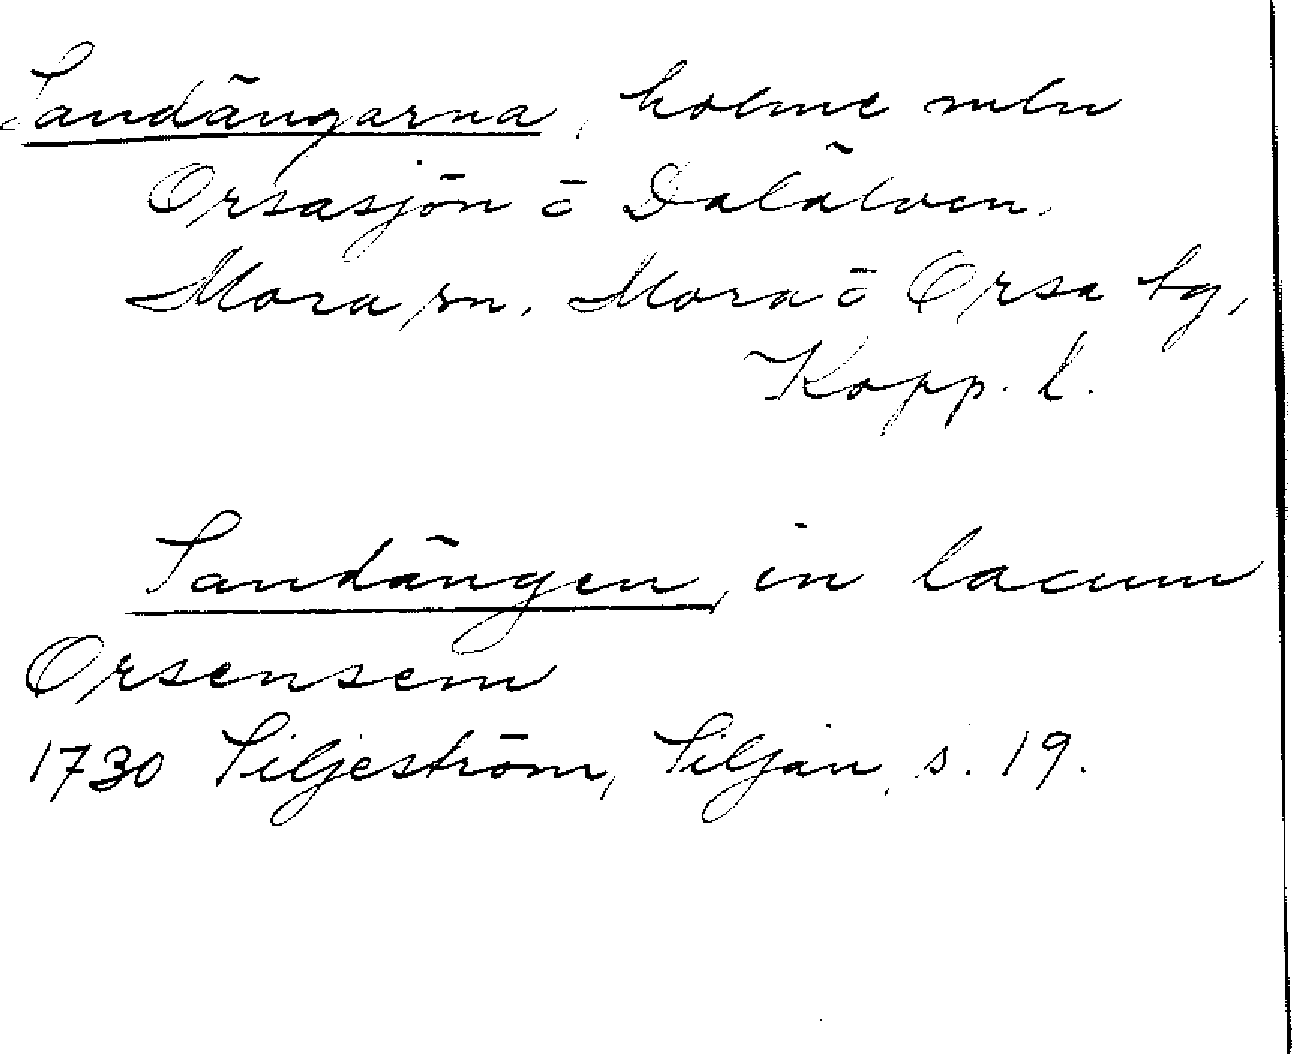 Sandängarna, holme mln
Orsasjön o Dalälven.
Mora sn. Mora o Orsa tg,
Kopp. l.
Sandängen, in lacum
Orsensem
1730 Siljeström, Siljan, s. 19.